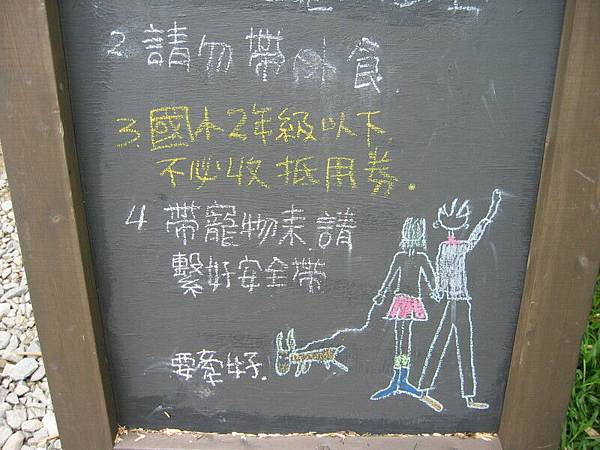 2. 請勿帶外食.
3. 國小2年級以下
不必收抵用券.
4 帶寵物來,請
繫好安全帶
要牽好.